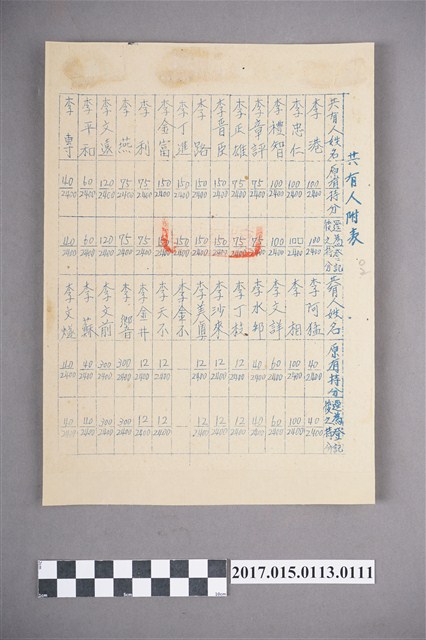 共有人附表
共有人姓名 原有持分 登記後之持分 共有人姓名 原有持分 登記後之持分
李港 100/2400 100/2400 李阿 40/2400 40/2400
李忠仁 100/2400 100/2400 李相 100/2400 100/2400
李禮智 100/2400 100/2400 李文詳 60/2400 60/2400
李章評 75/2400 75/2400 李水郎 40/2400 40/2400
李正雄 75/2400 75/2400 李丁枝 12/2400 12/2400
李晋臣 150/2400 150/2400 李沙來 12/2400 12/2400
李路 150/2400 150/2400 李美 12/2400 12/2400
李丁進 150/2400 150/2400 李金不
李金富 150/2400 150/2400 李天不 12/2400 12/2400
李利 75/2400 75/2400 李金井 12/2400 12/2400
李燕 75/2400 75/2400 李 300/2400 300/2400
李文遠 120/2400 120/2400 李文前 300/2400 300/2400
李平和 60/2400 60/2400 李蘇 40/2400 40/2400
李專 40/2400 40/2400 李文 40/2400 40/2400
2017.015.0113.0111